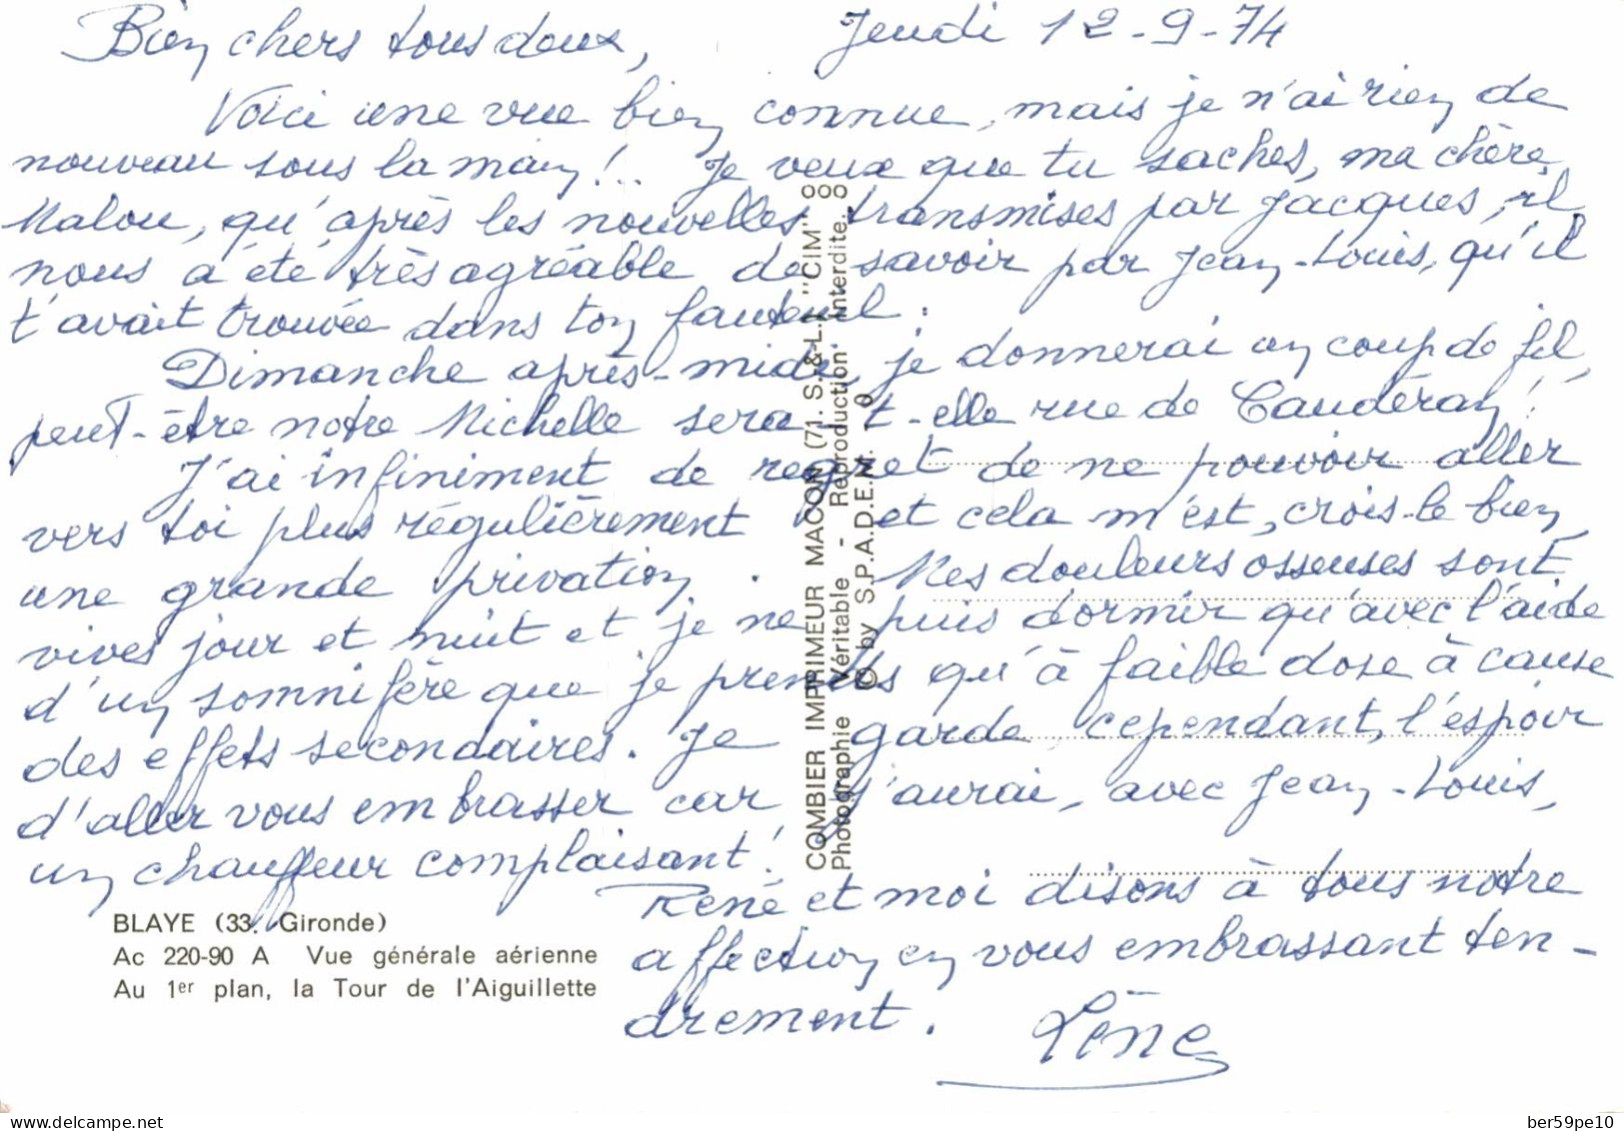 Jeudi 12-9-74
Bien chers tous deux,
Voici une vue bien connue, mais je n'ai rien de
nouveau sous la main !.. Je veux que tu saches, ma chère
Malou, qu'après les nouvelles transmises par Jacques, il
nous a été très agréable de savoir par Jean-Louis, qu'il
t'avait trouvée dans ton fauteuil.
Dimanche après-midi, je donnerai un coup de fil,
peut-être notre Michelle sera-t-elle rue de Caudéran !
J'ai infiniment de regret de ne pouvoir aller
vers toi plus régulièrement et cela m'est, crois-le bien,
une grande privation. Mes douleurs osseuses sont
vives jour et nuit et je ne puis dormir qu'avec l'aide
d'un somnifère que je prends qu'à faible dose à cause
des effets secondaires. Je garde, cependant, l'espoir
d'aller vous embrasser car j'aurai, avec Jean-Louis,
un chauffeur complaisant !
René et moi disons à tous notre
affection en vous embrassant ten-
drement.
Lène
BLAYE (33. Gironde)
Ac 220-90 A Vue générale aérienne
Au 1er plan, la Tour de l'Aiguillette
COMBIER IMPRIMEUR MACON (71. S.-&-L.) "CIM"
Photographie Véritable - Reproduction Interdite.
© by S.P.A.D.E.M.
delcampe.net
ber59pe10